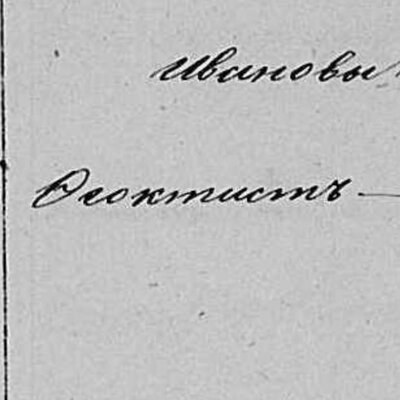 Ивановы
Ѳеоктистъ —